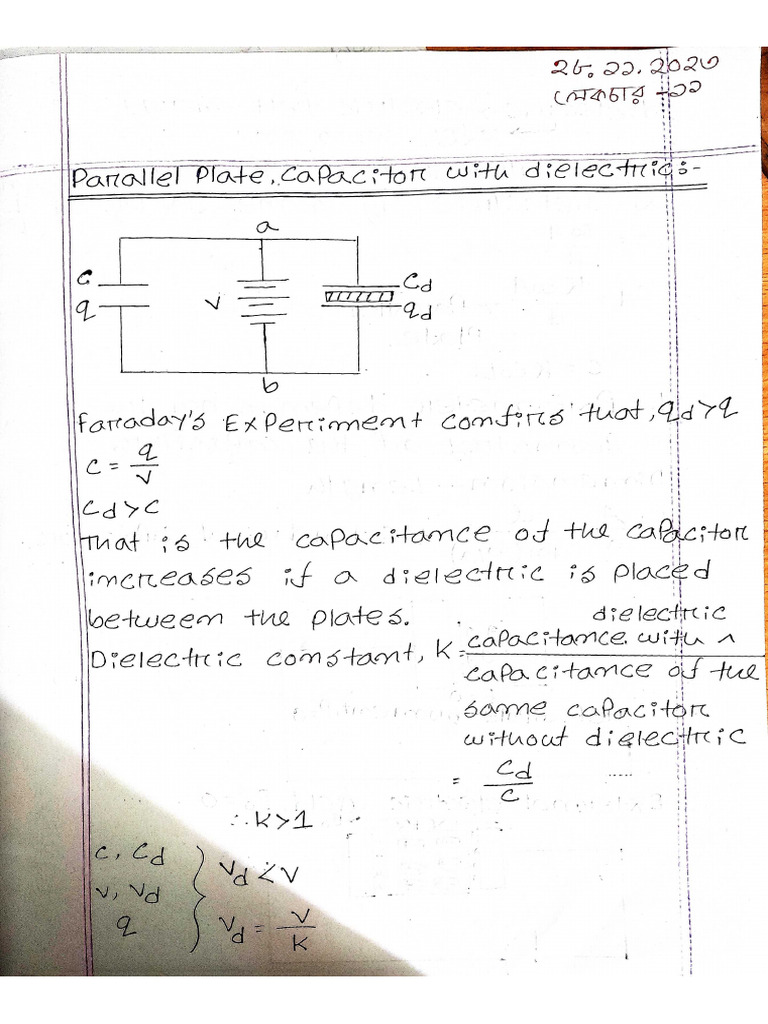 ২৮.১১.২০২৩
লেকচার -১১
Parallel Plate, Capacitor with dielectrics:-
a
C
q
V
Cd
qd
b
Farraday's Experiment confirs that, qd>q
C = q/V
Cd>C
That is the capacitance of the capacitor
increases if a dielectric is placed
between the plates.
Dielectric constant, K = capacitance with ^ dielectric / capacitance of the
same capacitor
without dielectric
= Cd/C .....
∴ K>1
C, Cd
V, Vd
q
Vd < V
Vd = V/K